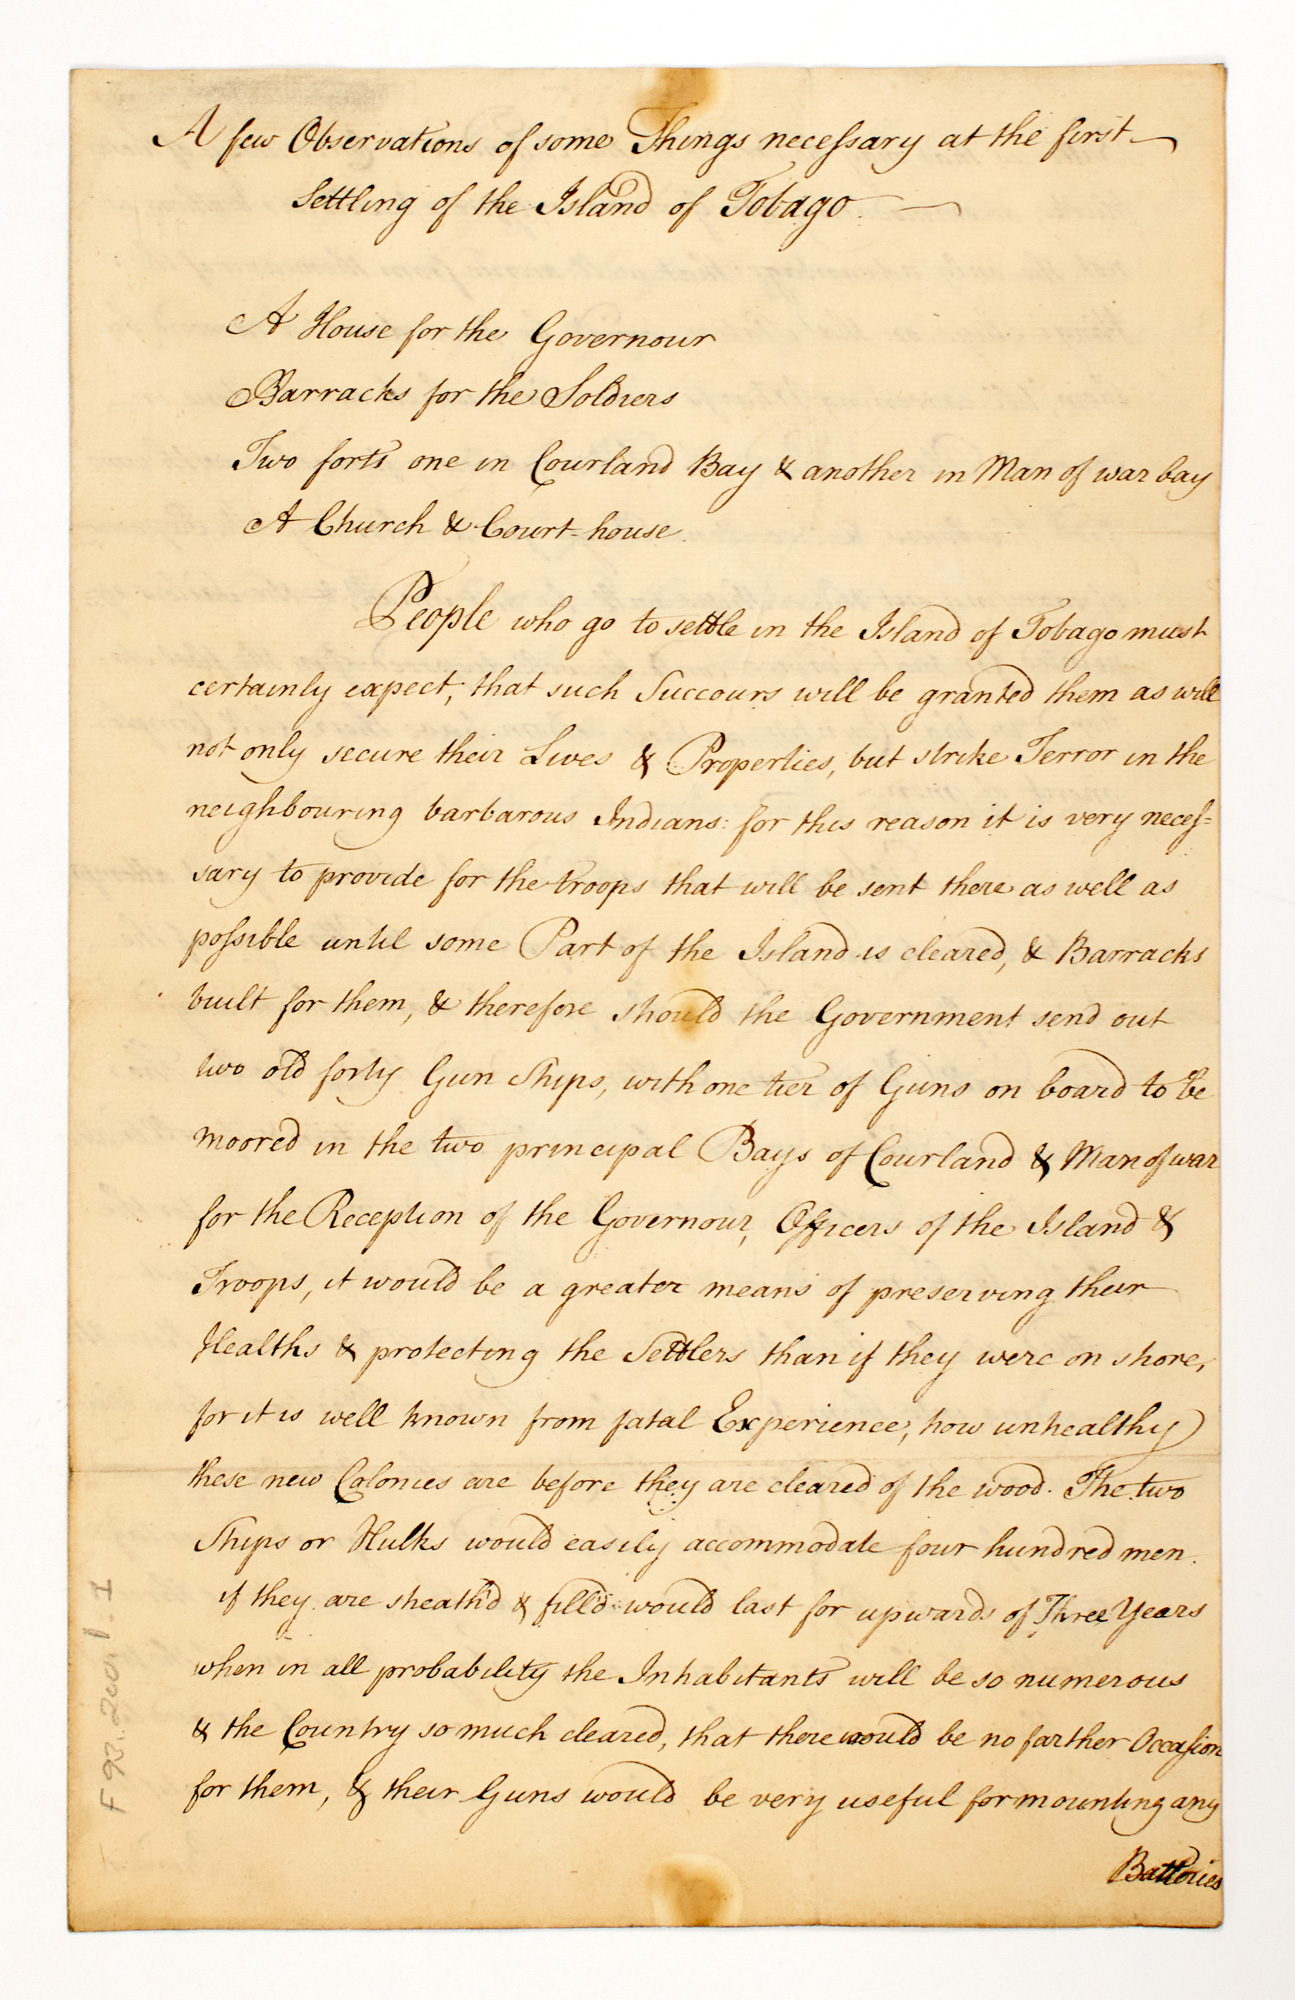 A few Observations of some Things necessary at the first
Settling of the Island of Tobago.
A House for the Governour
Barracks for the Soldiers
Two forts one in Courland Bay & another in Man of war bay
A Church & Court-house.
People who go to settle in the Island of Tobago must
certainly expect, that such Succours will be granted them as will
not only secure their Lives & Properties, but strike Terror in the
neighbouring barbarous Indians: for this reason it is very neces=
sary to provide for the troops that will be sent there as well as
possible until some Part of the Island is cleared, & Barracks
built for them, & therefore should the Government send out
two old forty Gun Ships, with one tier of Guns on board to be
moored in the two principal Bays of Courland & Man of war
for the Reception of the Governour, Officers of the Island &
Troops, it would be a greater means of preserving their
Healths & protecting the Settlers than if they were on shore,
for it is well known from fatal Experience, how unhealthy
these new Colonies are before they are cleared of the wood. The two
Ships or Hulks would easily accommodate four hundred men.
if they are sheath'd & fill'd would last for upwards of Three Years
when in all probability the Inhabitants will be so numerous
& the Country so much cleared, that there would be no farther Occasion
for them, & their Guns would be very useful for mounting any
Batteries
F 93. 2001. 1